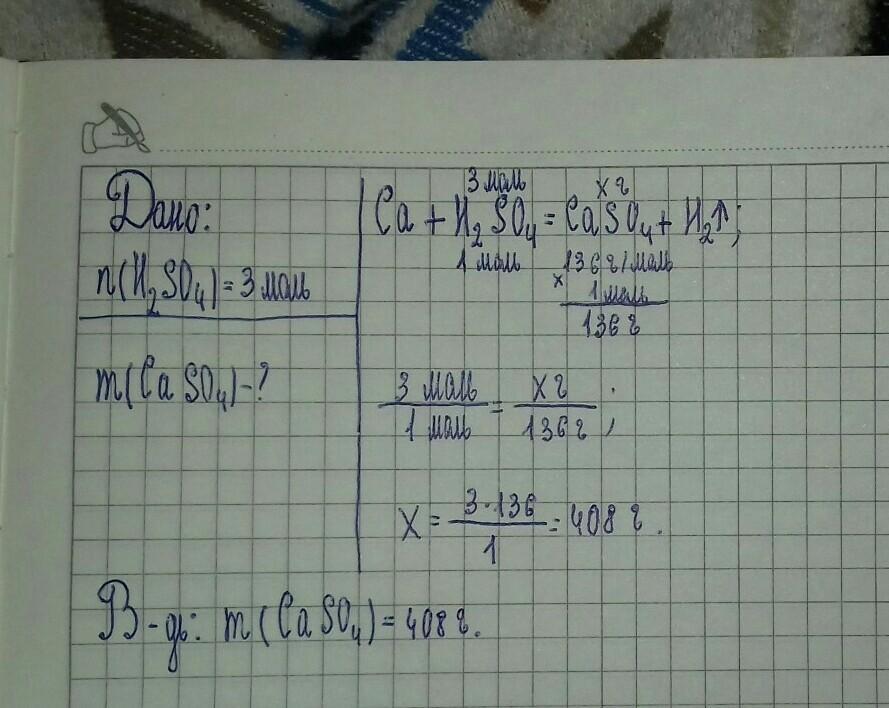 Дано:
n(H₂SO₄) = 3 моль
m(CaSO₄) - ?
3 моль x г
Ca + H₂SO₄ = CaSO₄ + H₂↑;
1 моль 136 г/моль
x 1 моль
136 г
3 моль / 1 моль = x г / 136 г ;
X = 3·136 / 1 = 408 г.
В-дь: m(CaSO₄) = 408 г.